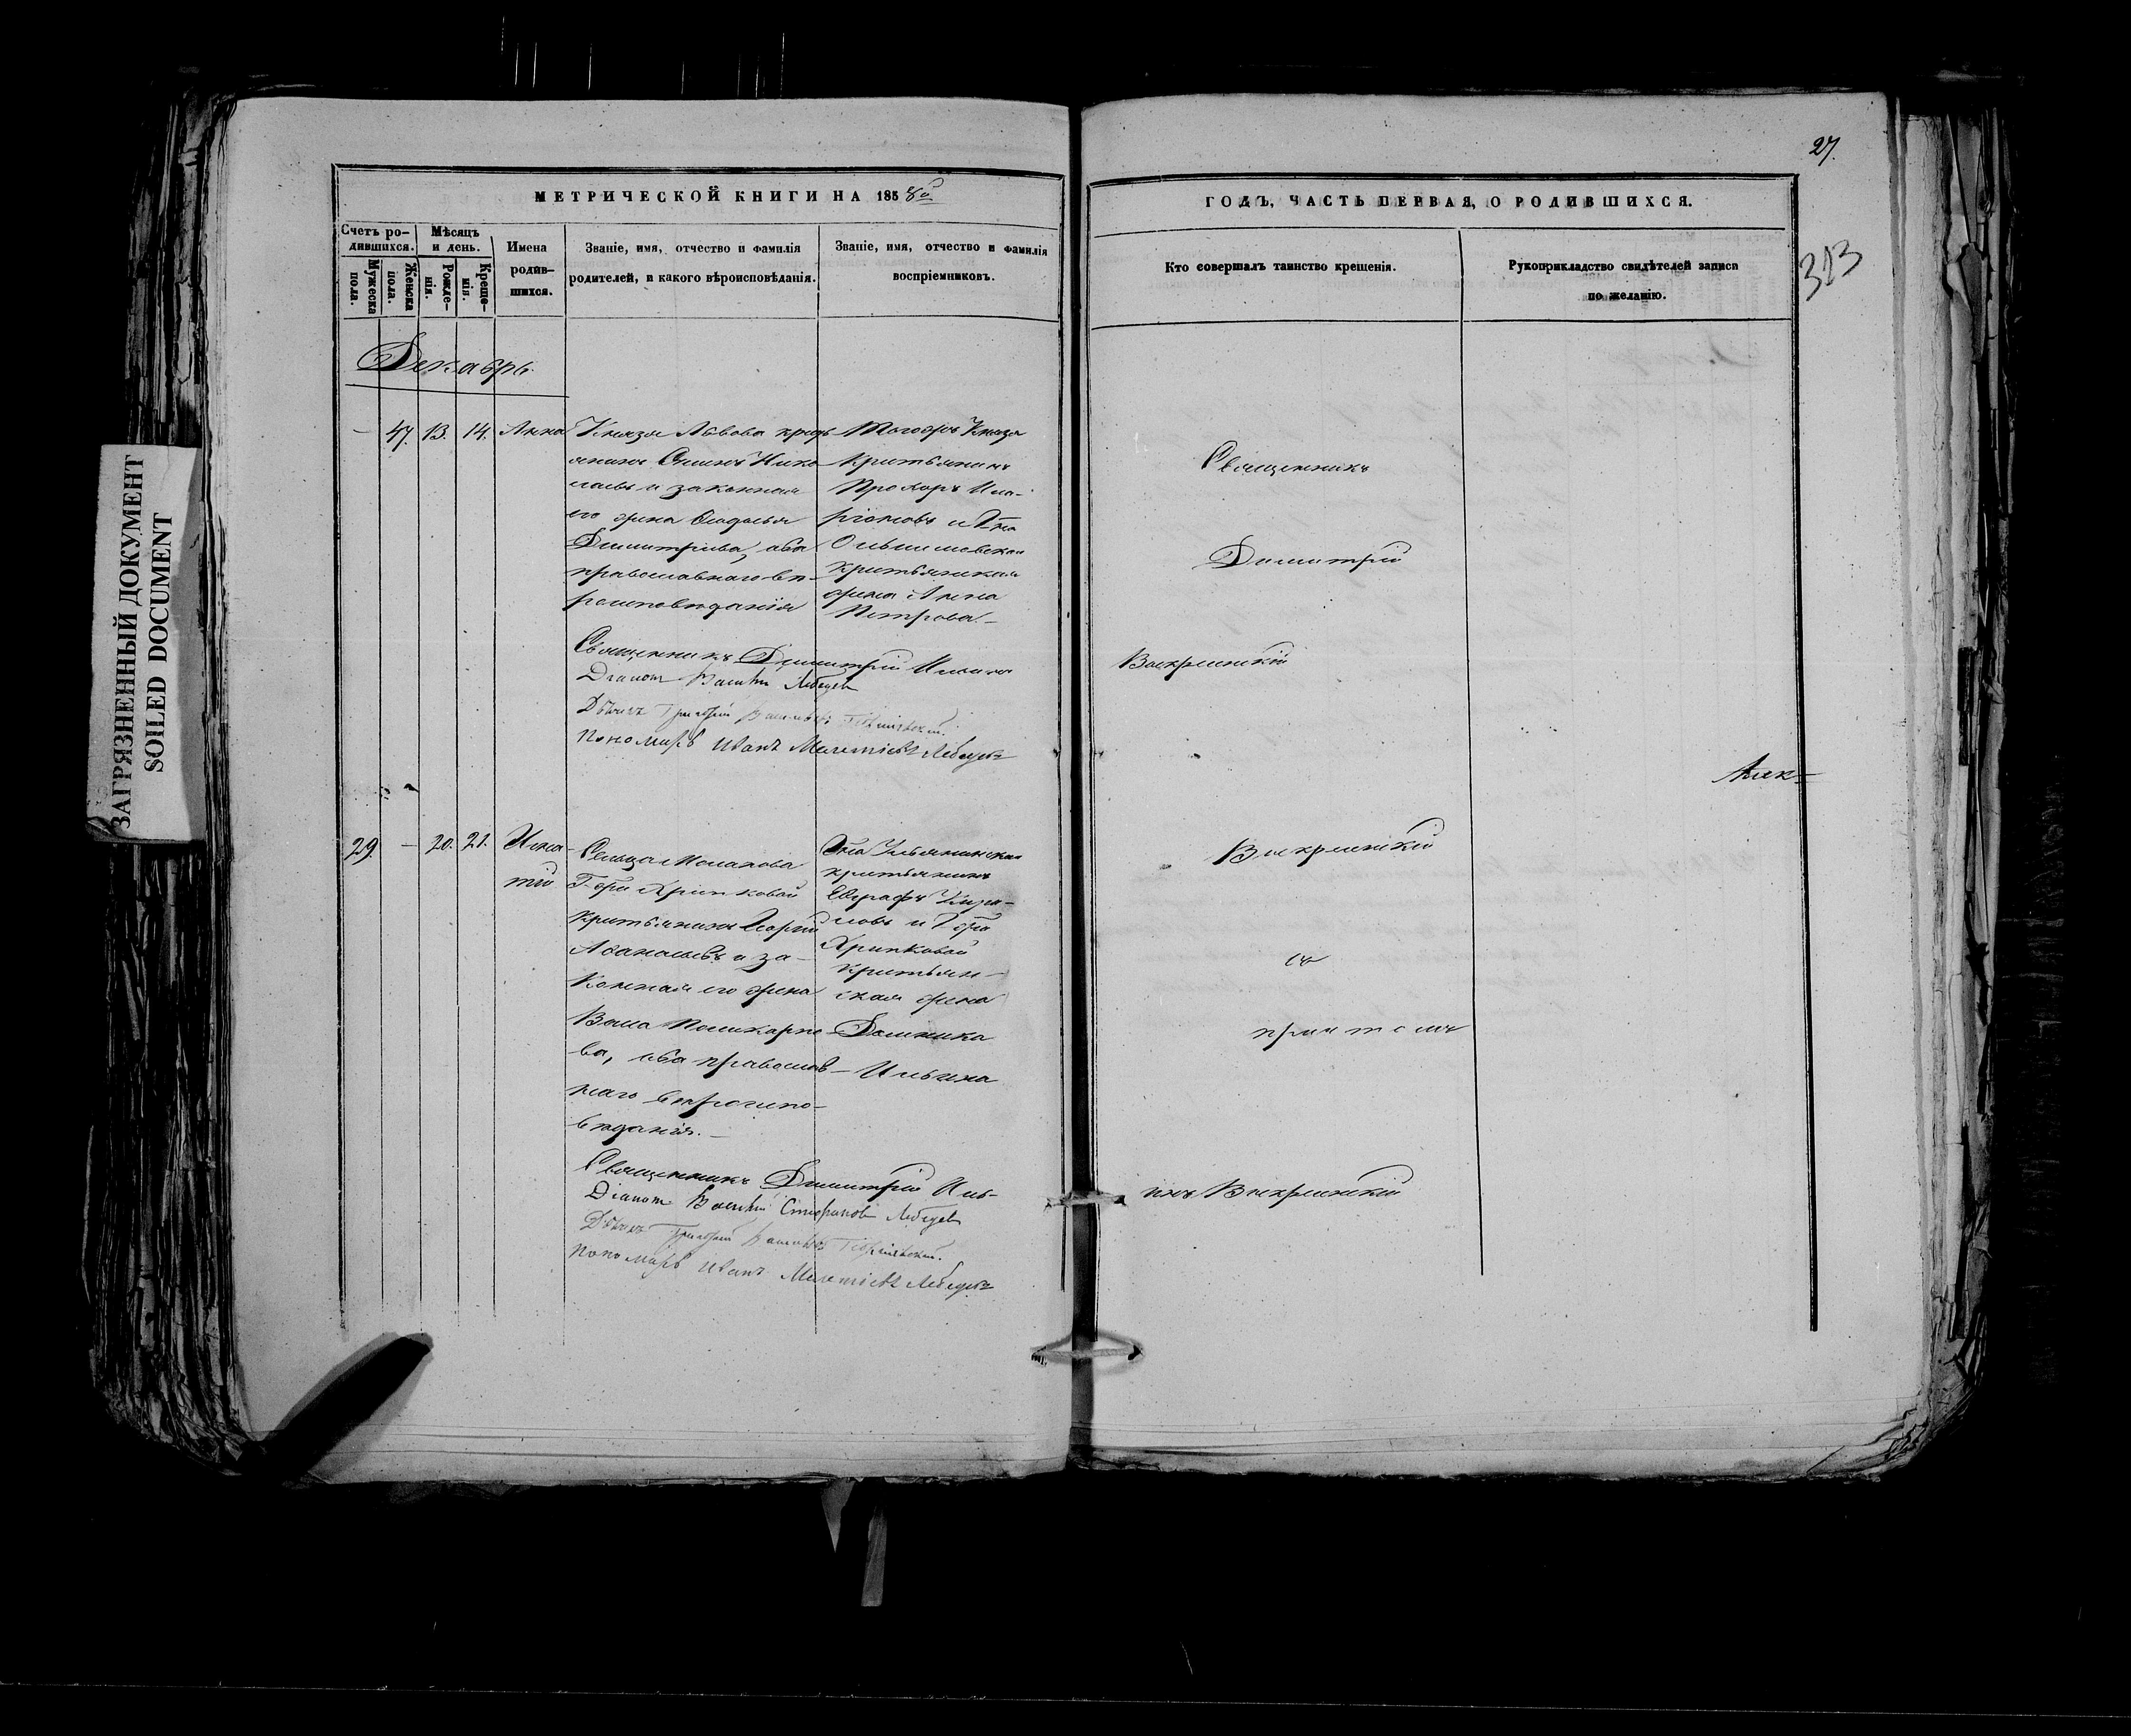 27.
МЕТРИЧЕСКОЙ КНИГИ НА 1858й
ГОДЪ, ЧАСТЬ ПЕРВАЯ, О РОДИВШИХСЯ.
313
Счетъ ро-
дившихся.
Мужеска
пола.
Женска
пола.
Мѣсяцъ
и день.
Рожде-
нія.
Креще-
нія.
Имена
родив-
шихся.
Званіе, имя, отчество и фамилія
родителей, и какого вѣроисповѣданія.
Званіе, имя, отчество и фамилія
воспріемниковъ.
Кто совершалъ таинство крещенія.
Рукоприкладство свидѣтелей записи
по желанію.
Декабрь.
— 47. 13. 14. Анна
Князя Львова кресть
янинъ Нико
лаевъ и законная
его жена
Димитріева, оба
православнаго вѣ-
роисповѣданія
Тогожъ Князя
Крестьянинъ
Прохоръ Ила-
ріоновъ и
крестьянская
жена Анна
Петрова.
Священникъ
Димитрій
Воскресенскій
Священникъ Димитрій Ильинъ
Діаконъ Василій Лебедев
Дьячекъ Григорій Васильевъ
Пономарь Иванъ Мелетіевъ Лебедевъ
29. — 20. 21. Игна-
тій
Сельца
Г-жи Хрипковой
Крестьянинъ Георгій
Афанасьевъ и за-
конная его жена
Поликарпо
ва, оба православ-
наго вѣроиспо-
вѣданія.
крестьянинъ
Евграфъ Кири-
ловъ и Г-жи
Хрипковой
Крестьян-
ская жена
Домника
Ильина
Воскресенскій
съ
причтомъ
Священникъ Димитрій Иль-
инъ Воскресенскій
Діаконъ Василій Стефановъ Лебедев
Дьячекъ Григорій Васильевъ
Пономарь Иванъ Мелетіевъ Лебедевъ
ЗАГРЯЗНЕННЫЙ ДОКУМЕНТ
SOILED DOCUMENT